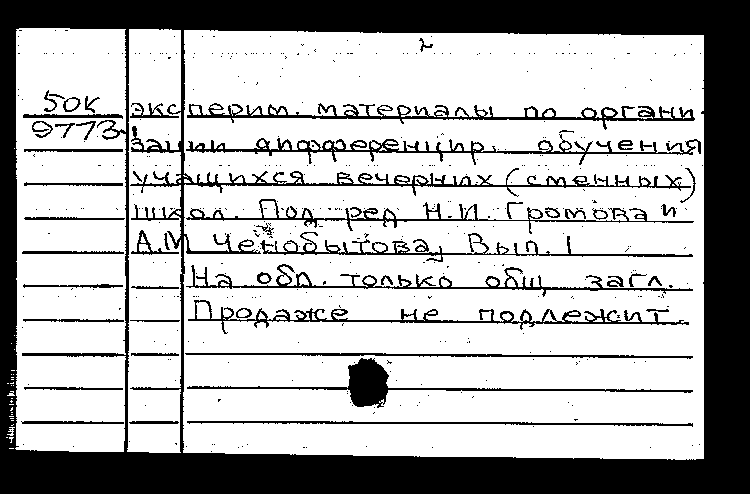 2
50К эксперим. материалы по органи-
9773 зации дифференцир. обучения
учащихся вечерних (сменных)
школ. Под ред. Н.И. Громова и
А.М Ченобытова, Вып. 1
На обл. только общ. загл.
Продаже не подлежит.